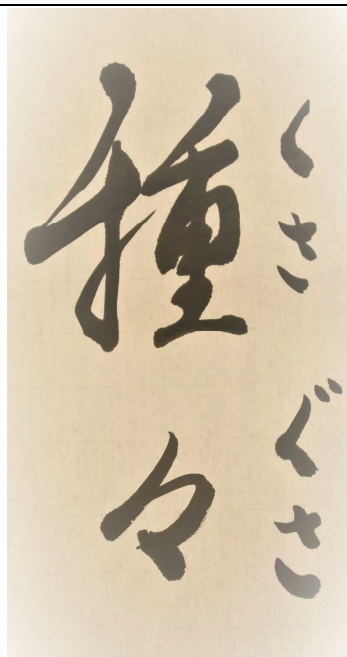 くさぐさ
種々